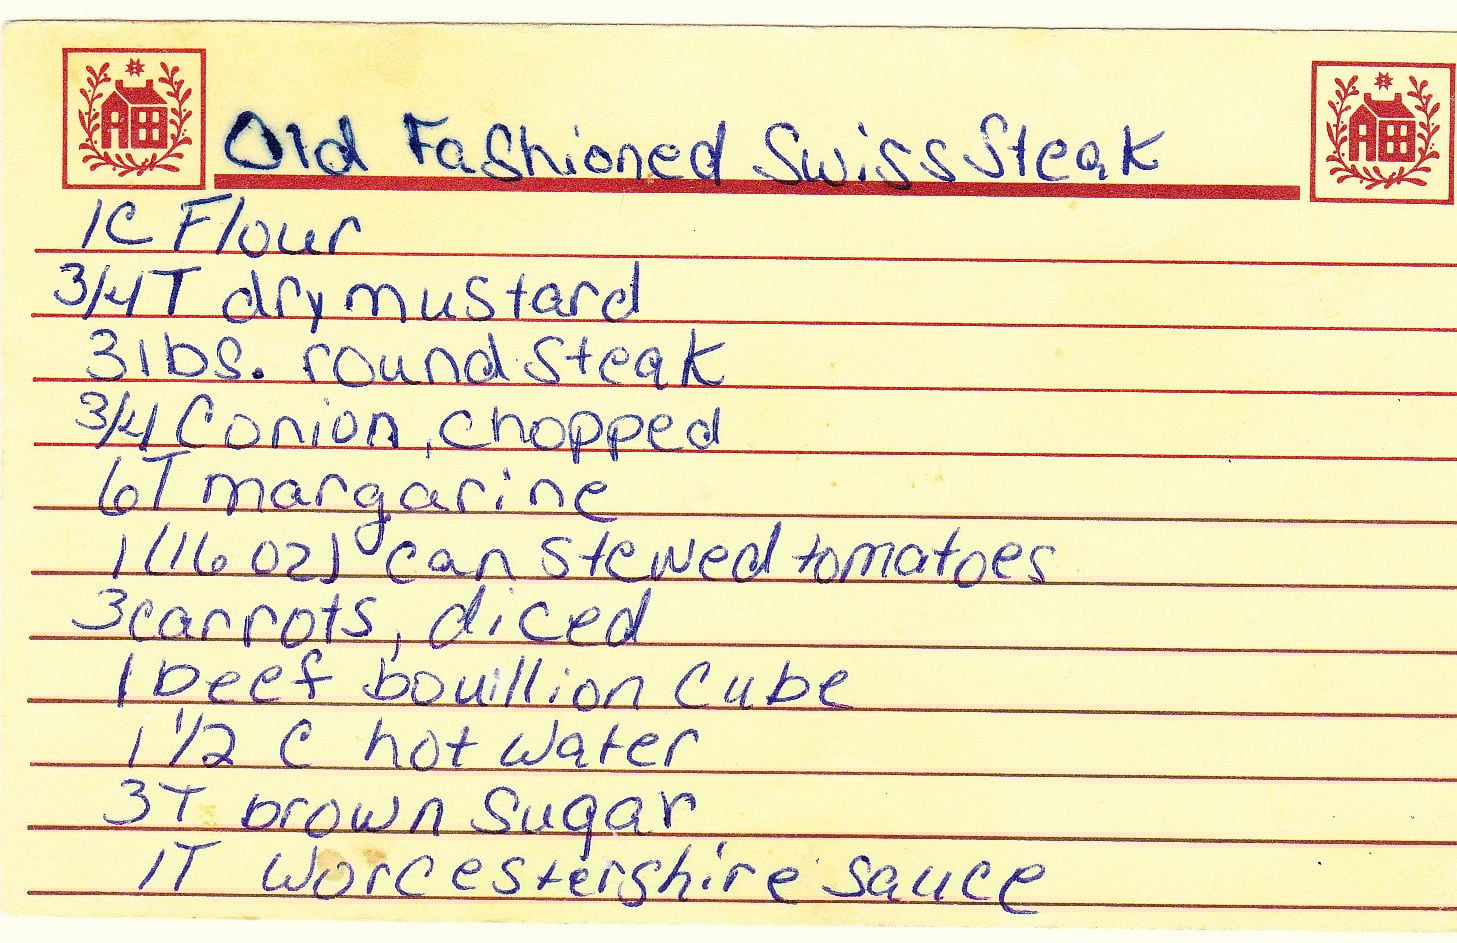 Old Fashioned Swiss Steak
1C Flour
3/4T dry mustard
3 lbs. round steak
3/4 C onion, chopped
6T margarine
1 (16 oz) can stewed tomatoes
3 carrots, diced
1 beef bouillion cube
1 1/2 C hot water
3T brown sugar
1T Worcestershire sauce